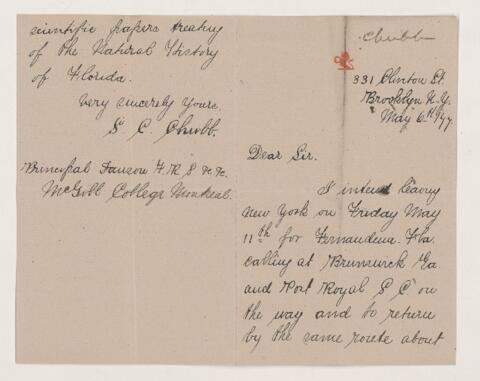 Chubb
331 Clinton St.
Brooklyn N. Y.
May 6th /77
Dear Sir.
I intend leaving
New York on Friday May
11th for Fernandina. Fla.
calling at Brunswick Ga.
and Port Royal S C on
the way and to return
by the same route about
scientific papers treating
of the Natural History
of Florida.
Very sincerely Yours.
S C. Chubb.
Principal Dawson F. R S &c &c
McGill College Montreal.